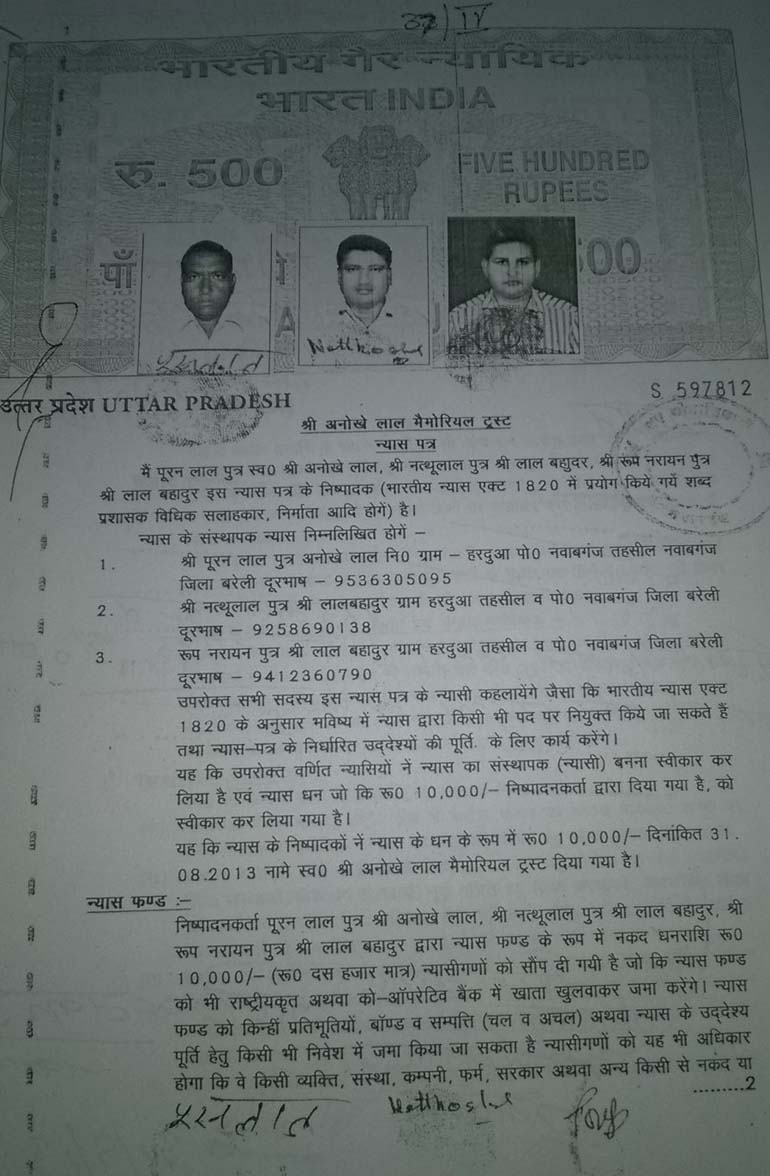 33/IV
भारतीय गैर न्यायिक
भारत INDIA
रु. 500
FIVE HUNDRED
RUPEES
पाँ
00
पूरनलाल
Natthoolal
उत्तर प्रदेश UTTAR PRADESH
S 597812
श्री अनोखे लाल मैमोरियल ट्रस्ट
न्यास पत्र
मैं पूरन लाल पुत्र स्व0 श्री अनोखे लाल, श्री नत्थूलाल पुत्र श्री लाल बहाुदर, श्री रूप नरायन पुत्र
श्री लाल बहादुर इस न्यास पत्र के निष्पादक (भारतीय न्यास एक्ट 1820 में प्रयोग किये गयें शब्द
प्रशासक विधिक सलाहकार, निर्माता आदि होगें) है।
न्यास के संस्थापक न्यास निम्नलिखित होगें –
1. श्री पूरन लाल पुत्र अनोखे लाल नि0 ग्राम – हरदुआ पो0 नवाबगंज तहसील नवाबगंज
जिला बरेली दूरभाष – 9536305095
2. श्री नत्थूलाल पुत्र श्री लालबहादुर ग्राम हरदुआ तहसील व पो0 नवाबगंज जिला बरेली
दूरभाष – 9258690138
3. रूप नरायन पुत्र श्री लाल बहादुर ग्राम हरदुआ तहसील व पो0 नवाबगंज जिला बरेली
दूरभाष – 9412360790
उपरोक्त सभी सदस्य इस न्यास पत्र के न्यासी कहलायेंगे जैसा कि भारतीय न्यास एक्ट
1820 के अनुसार भविष्य में न्यास द्वारा किसी भी पद पर नियुक्त किये जा सकते हैं
तथा न्यास–पत्र के निर्धारित उद्देश्यों की पूर्ति के लिए कार्य करेंगे।
यह कि उपरोक्त वर्णित न्यासियों नें न्यास का संस्थापक (न्यासी) बनना स्वीकार कर
लिया है एवं न्यास धन जो कि रू0 10,000/– निष्पादनकर्ता द्वारा दिया गया है, को
स्वीकार कर लिया गया है।
यह कि न्यास के निष्पादकों नें न्यास के धन के रूप में रू0 10,000/– दिनांकित 31.
08.2013 नामे स्व0 श्री अनोखे लाल मैमोरियल ट्रस्ट दिया गया है।
न्यास फण्ड :–
निष्पादनकर्ता पूरन लाल पुत्र श्री अनोखे लाल, श्री नत्थूलाल पुत्र श्री लाल बहादुर, श्री
रूप नरायन पुत्र श्री लाल बहादुर द्वारा न्यास फण्ड के रूप में नकद धनराशि रू0
10,000/– (रू0 दस हजार मात्र) न्यासीगणों को सौंप दी गयी है जो कि न्यास फण्ड
को भी राष्ट्रीयकृत अथवा को–ऑपरेटिव बैंक में खाता खुलवाकर जमा करेंगे। न्यास
फण्ड को किन्हीं प्रतिभूतियों, बॉण्ड व सम्पत्ति (चल व अचल) अथवा न्यास के उद्देश्य
पूर्ति हेतु किसी भी निवेश में जमा किया जा सकता है न्यासीगणों को यह भी अधिकार
होगा कि वे किसी व्यक्ति, संस्था, कम्पनी, फर्म, सरकार अथवा अन्य किसी से नकद या
.........2
पूरनलाल Natthoolal